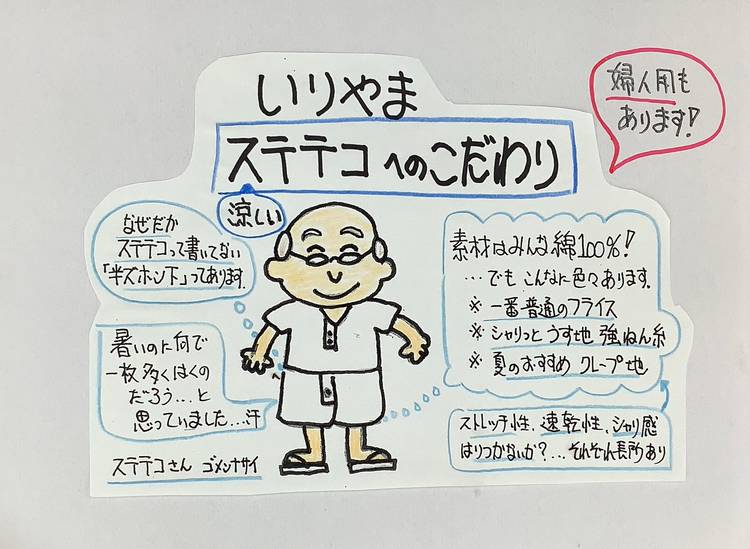 いりやま
ステテコへのこだわり
涼しい
婦人用も
あります!
なぜだか
ステテコって書いてない
「半ズボン下」ってあります.
暑いのに何で
一枚多くはくの
だろう…と
思っていました…汗
ステテコさん ゴメンナサイ
素材はみんな綿100%!
…でも こんなに色々あります.
※ 一番普通のフライス
※ シャリっと うす地 強ねん糸
※ 夏のおすすめ クレープ地
ストレッチ性、速乾性、シャリ感
はりつかないか?…それぞれ長所あり